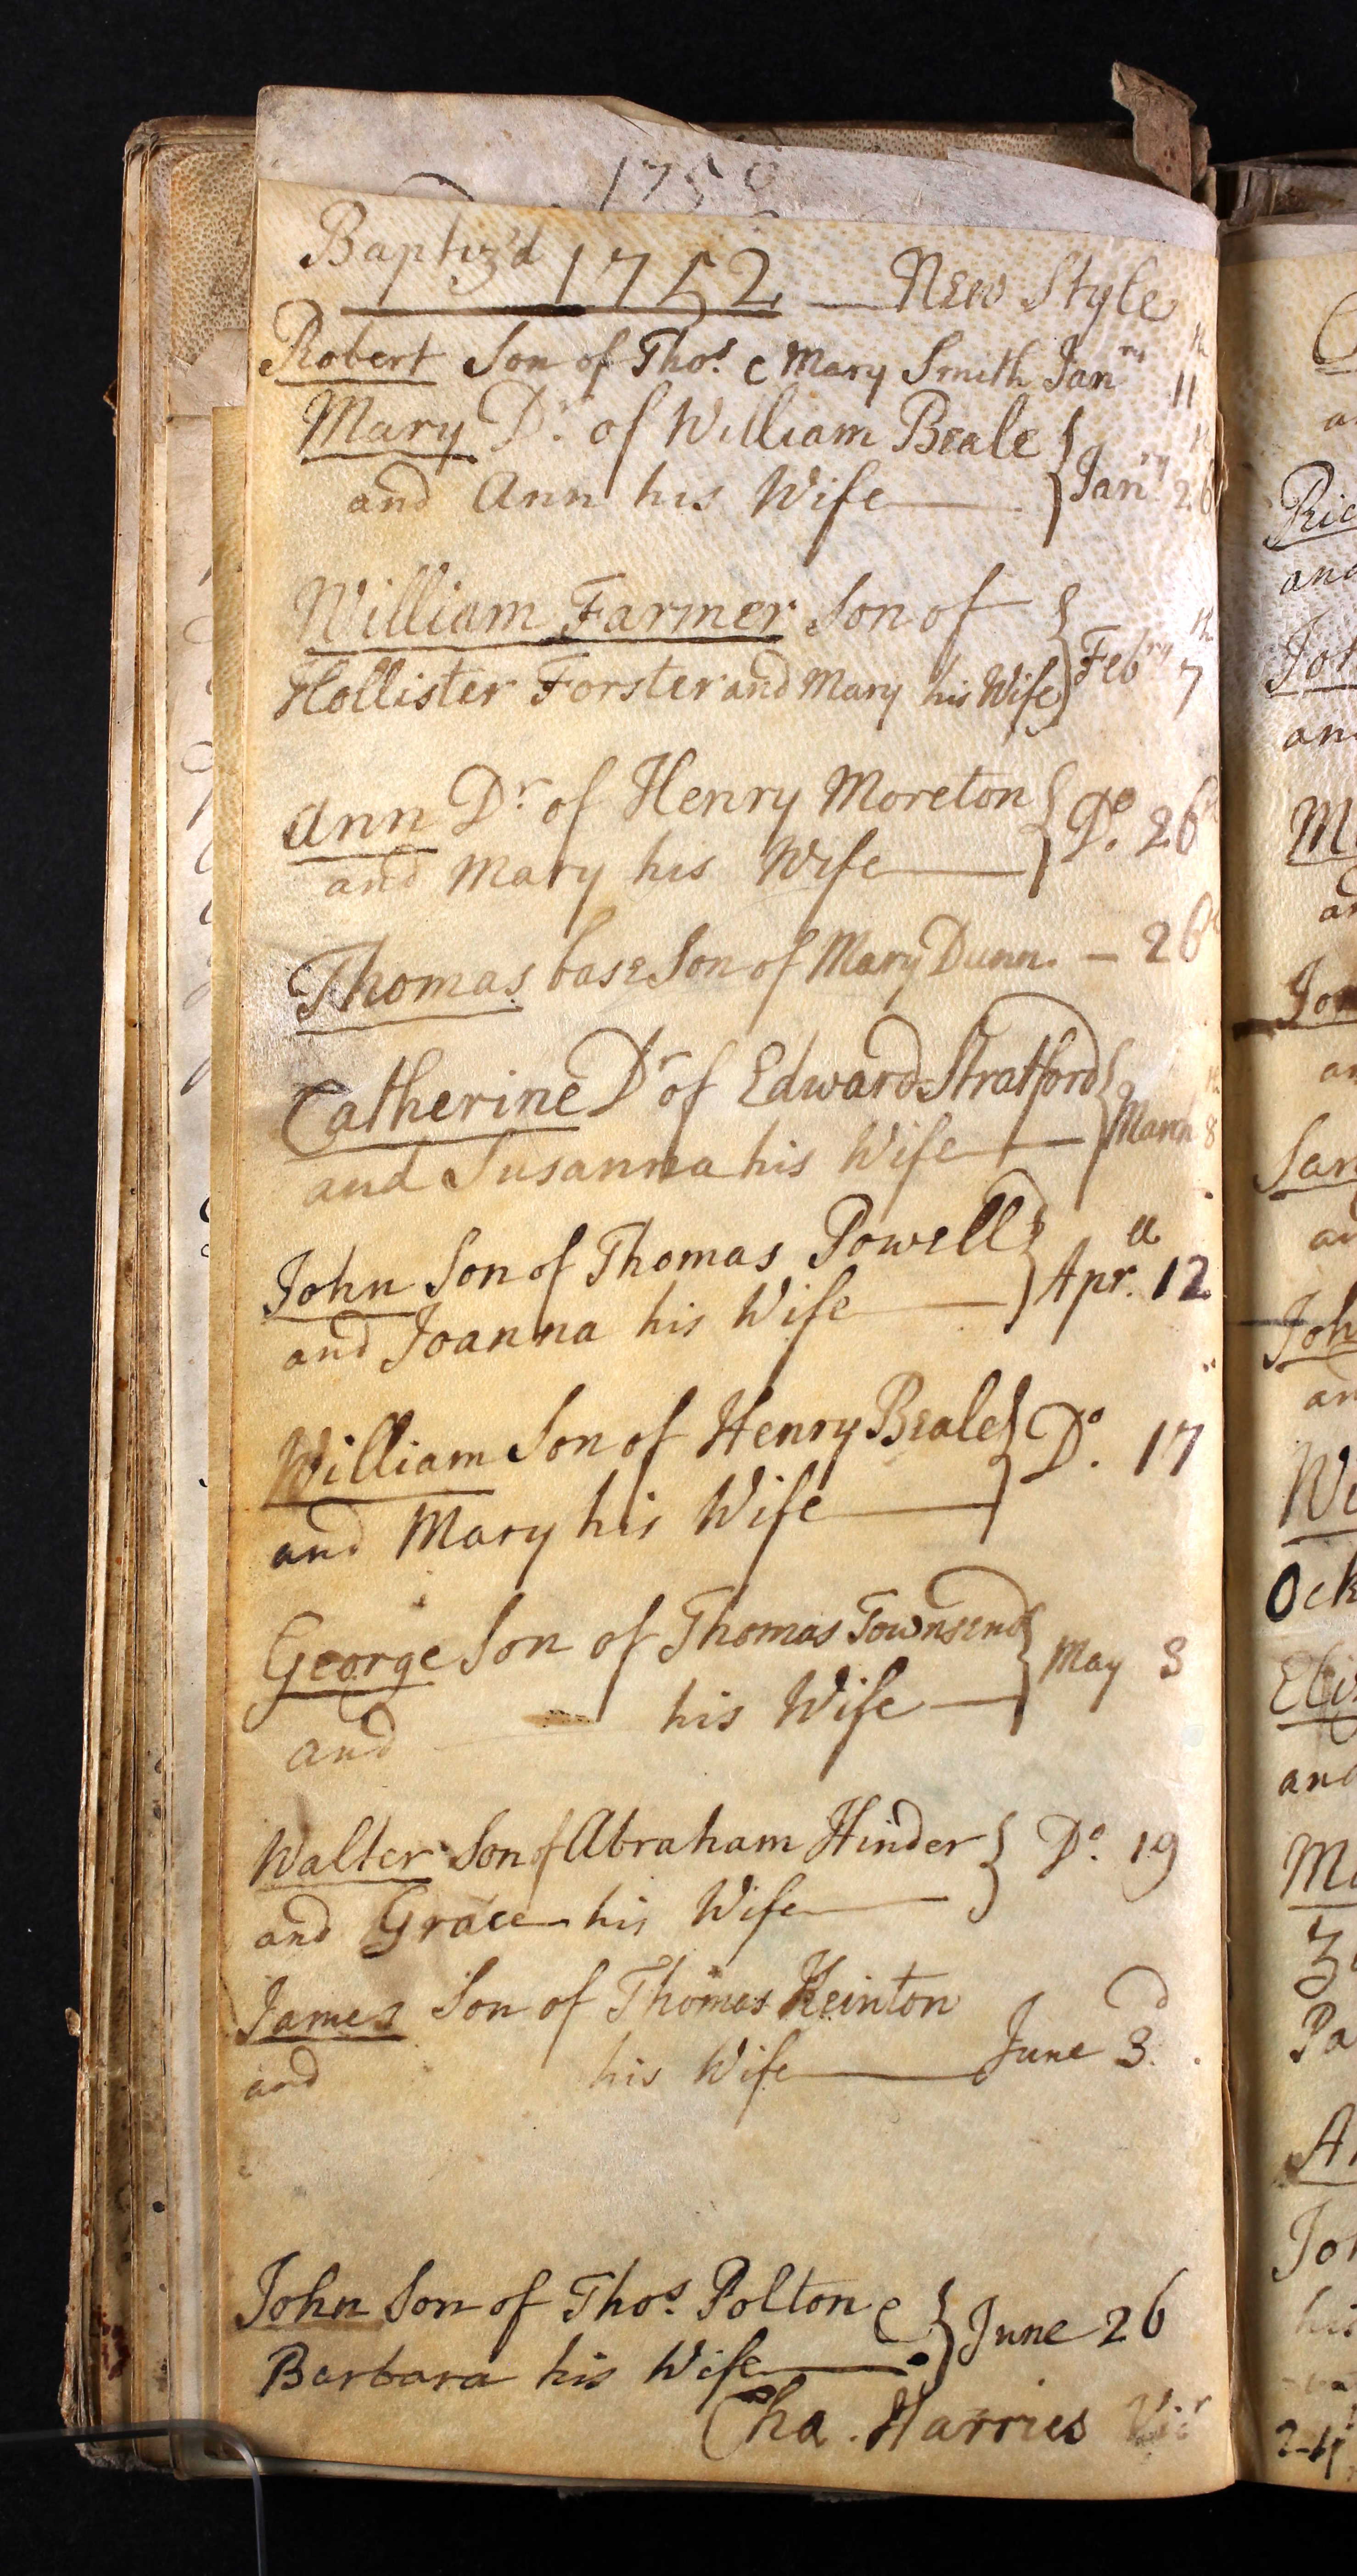 1758
Baptiz'd 1752 — New Style
Robert Son of Thos. & Mary Smith Janry 11th
Mary Dr. of William Beale
and Ann his Wife — Janry 26th
William Farmer Son of
Hollister Forster and Mary his Wife Febry 7th
Ann Dr. of Henry Moreton
and Mary his Wife — Do. 26th
Thomas base Son of Mary Dunn. — 26th
Catherine Dr of Edward Stratford
and Susanna his Wife — March 8th
John Son of Thomas Powell
and Joanna his Wife — Apr. 12
William Son of Henry Beale
and Mary his Wife — Do. 17
George Son of Thomas Townsend
and — his Wife — May 3
Walter Son of Abraham Hinder
and Grace his Wife — Do. 19
James Son of Thomas Keinton
and his Wife — June 3d.
John Son of Thos. Polton &
Barbara his Wife — June 26
Cha. Harries Vicr